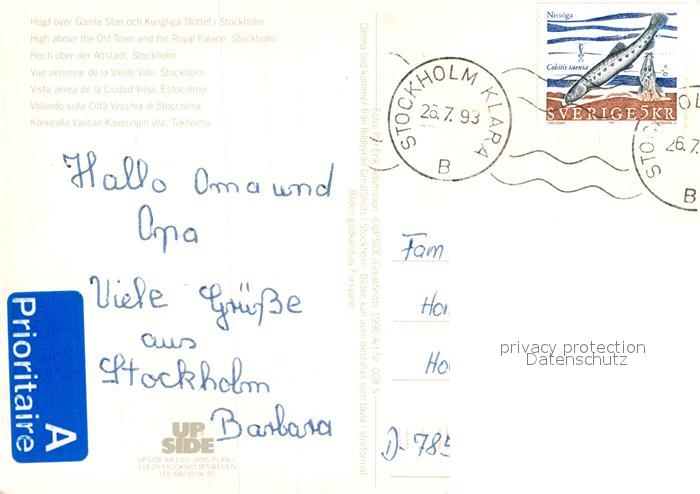 Högt over Gamla Stan och Kungliga Slottet i Stockholm.
High above the Old Town and the Royal Palace, Stockholm
Hoch über der Altstadt, Stockholm
Vue aérienne de la Vieille Ville, Stockholm
Vista aerea de la Ciudad Vieja, Estocolmo
Volando sulla Città Vecchia di Stoccolma
Korkealla Vanhan Kaupungin yllä, Tukholma
Hallo Oma und
Opa
Viele Grüße
aus
Stockholm
Barbara
Prioritaire
A
UP
SIDE
UPSIDE AB LILL-JANS PLAN 2
114 25 STOCKHOLM SWEDEN
TEL (08) 10 96 50
Denna bild kommer från Bildbyrån GreatShots i Stockholm. Bilden kan även beställas som tavla i storformat
Foto: Per-Erik Adamsson CUPSIDE/GreatShots 1990 Art Nr 008 S
Bilden godkänd av Försvaret
STOCKHOLM KLARA
26.7.93
B
Nissöga
Cobitis taenia
SVERIGE 5KR
STO
OL
26.7.
B
Fam
Ho
Ho
D-785
privacy protection
Datenschutz